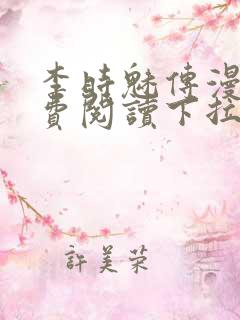 李時魅傳漫
費閱讀下拉
許美荣